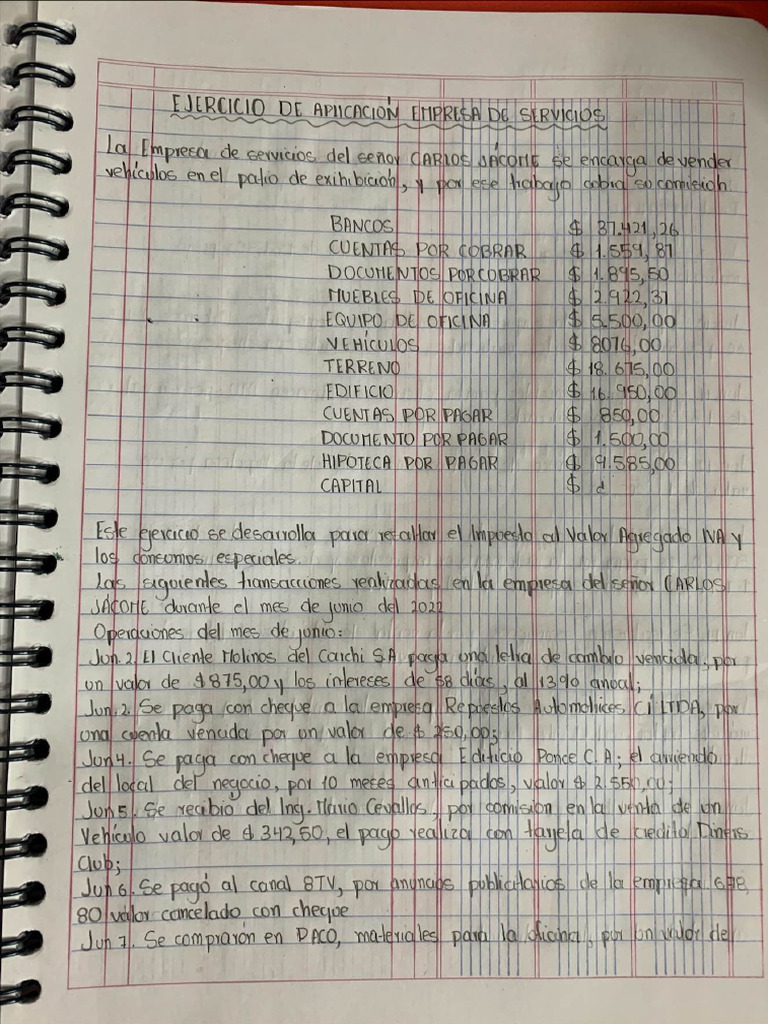 EJERCICIO DE APLICACIÓN EMPRESA DE SERVICIOS
La Empresa de servicios del señor CARLOS JÁCOME se encarga de vender
vehículos en el patio de exihibición, y por ese trabajo cobra su comisión
BANCOS $ 37.421,26
CUENTAS POR COBRAR $ 1.559,87
DOCUMENTOS POR COBRAR $ 1.895,50
MUEBLES DE OFICINA $ 2.922,37
EQUIPO DE OFICINA $ 5.500,00
VEHÍCULOS $ 8076,00
TERRENO $ 18.675,00
EDIFICIO $ 16.950,00
CUENTAS POR PAGAR $ 850,00
DOCUMENTO POR PAGAR $ 1.500,00
HIPOTECA POR PAGAR $ 9.585,00
CAPITAL $ ¿
Este ejercicio se desarrolla para recaltar el Impuesto al Valor Agregado IVA y
los consumos especiales.
Las siguientes transacciones realizadas en la empresa del señor CARLOS
JÁCOME durante el mes de junio del 2022
Operaciones del mes de junio:
Jun.2. El Cliente Molinos del Carchi S.A paga una letra de cambio vencida, por
un valor de $875,00 y los intereses de 58 días, al 13% anual;
Jun.2. Se paga con cheque a la empresa Repuestos Automotrices CÍ LTDA, por
una cuenta vencida por un valor de $ 250,00;
Jun4. Se paga con cheque a la empresa Edificio Ponce C.A; el arriendo
del local del negocio, por 10 meses anticipados, valor $ 2.550,00;
Jun5. Se recibio del Ing. Mario Cevallos, por comisión en la venta de un
Vehículo valor de $342,50, el pago realiza con tarjeta de credito Diners
Club;
Jun 6. Se pagó al canal 8TV, por anuncios publicitarios de la empresa
80 valor cancelado con cheque
Jun 7. Se compraron en PACO, materiales para la oficina, por un valor de